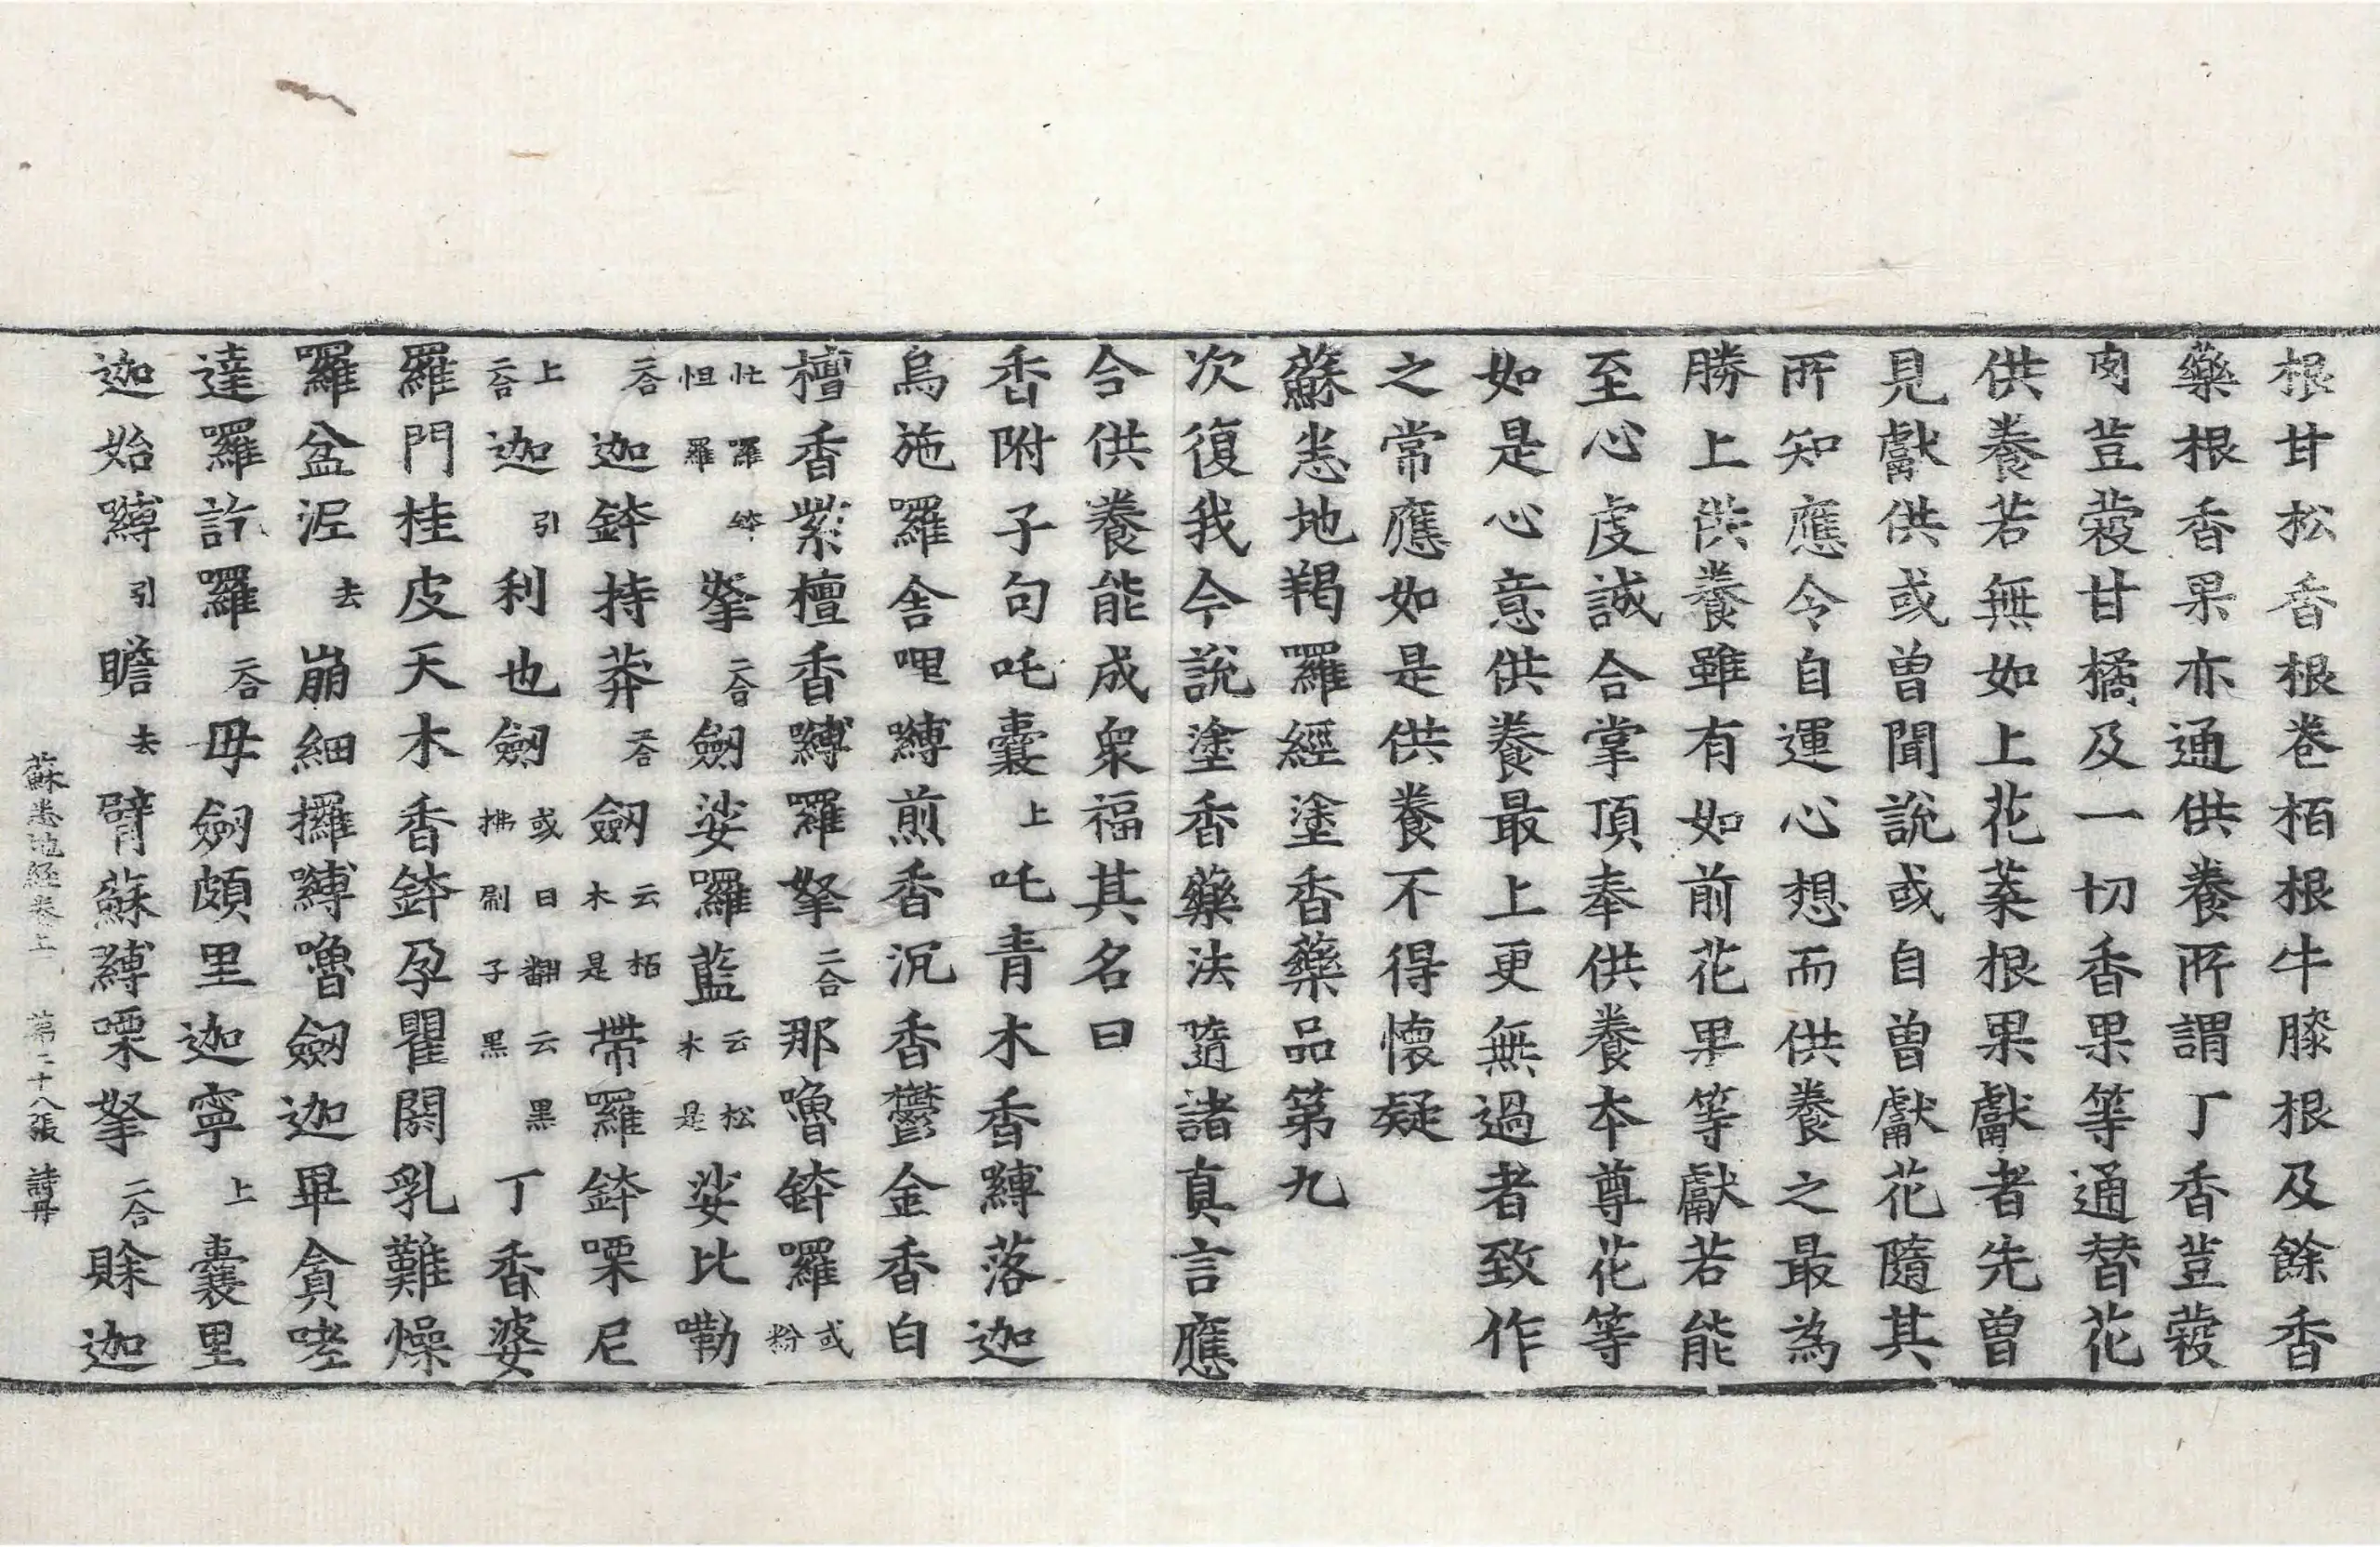 根甘松香根卷栢根牛膝根及餘香
藥根香果亦通供養所謂丁香荳蔲
肉荳蔲甘橘及一切香果等通替花
供養若無如上花菜根果獻者先曾
見獻供或曾聞說或自曾獻花隨其
所知應令自運心想而供養之最為
勝上供養雖有如前花果等獻若能
至心虔誠合掌頂奉供養本尊花等
如是心意供養最上更無過者致作
之常應如是供養不得懷疑
蘇悉地羯羅經塗香藥品第九
次復我今說塗香藥法隨諸真言應
合供養能成衆福其名曰
香附子句吒囊上吒青木香嚩落迦
烏施羅舍哩嚩煎香沉香鬱金香白
檀香紫檀香嚩羅拏二合那嚕鉢羅或粉
忙囉鉢怛羅拏二合劒娑羅藍云松木是娑比嘞
二合迦鉢持莽二合劒云栢木是帶羅鉢㗚尼
上二合迦引利也劒或曰翻云黑拂刷子黑丁香婆
羅門桂皮天木香鉢孕瞿閼乳難燥
囉盆泥去崩細攞嚩嚕劒迦畢貪哇
達囉訖羅二合毋劒頗里迦寧上囊里
迦始嚩引瞻去臂蘇嚩㗚拏二合賖迦
蘇悉地經卷上 第二十八張 詩册